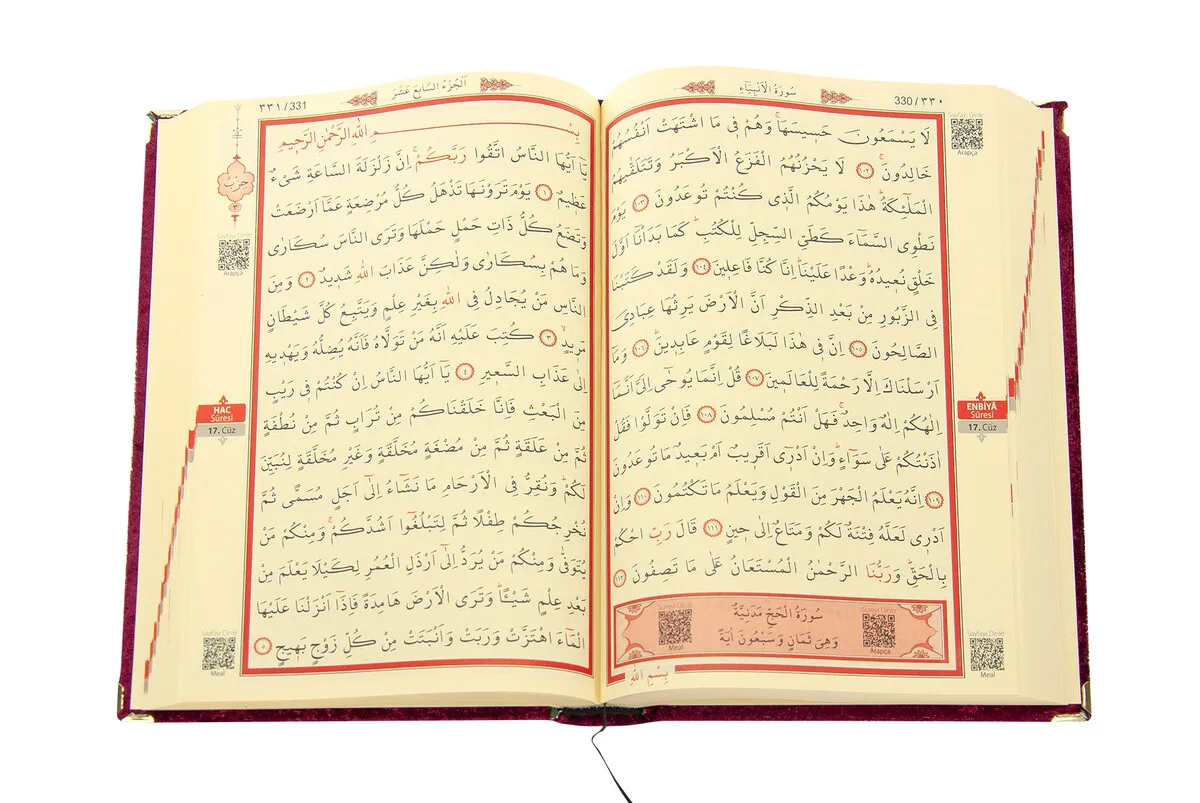 سُورَةُ الْاَنْبِيَاءِ
330 / ٣٣٠
Sayfayı Dinle
Arapça
لَا يَسْمَعُونَ حَسِيسَهَاۚ وَهُمْ فِي مَا اشْتَهَتْ اَنْفُسُهُمْ
خَالِدُونَۚ ١٠٢ لَا يَحْزُنُهُمُ الْفَزَعُ الْاَكْبَرُ وَتَتَلَقّٰيهُمُ
الْمَلٰٓئِكَةُۜ هٰذَا يَوْمُكُمُ الَّذ۪ي كُنْتُمْ تُوعَدُونَ ١٠٣ يَوْمَ
نَطْوِي السَّمَٓاءَ كَطَيِّ السِّجِلِّ لِلْكُتُبِۜ كَمَا بَدَأْنَٓا اَوَّلَ
خَلْقٍ نُع۪يدُهُۜ وَعْدًا عَلَيْنَاۜ اِنَّا كُنَّا فَاعِل۪ينَ ١٠٤ وَلَقَدْ كَتَبْنَا
فِي الزَّبُورِ مِنْ بَعْدِ الذِّكْرِ اَنَّ الْاَرْضَ يَرِثُهَا عِبَادِيَ
الصَّالِحُونَ ١٠٥ اِنَّ ف۪ي هٰذَا لَبَلَاغًا لِقَوْمٍ عَابِد۪ينَۜ ١٠٦ وَمَٓا
اَرْسَلْنَاكَ اِلَّا رَحْمَةً لِلْعَالَم۪ينَ ١٠٧ قُلْ اِنَّمَا يُوحٰٓى اِلَيَّ اَنَّمَٓا
اِلٰهُكُمْ اِلٰهٌ وَاحِدٌۚ فَهَلْ اَنْتُمْ مُسْلِمُونَ ١٠٨ فَاِنْ تَوَلَّوْا فَقُلْ
اٰذَنْتُكُمْ عَلٰى سَوَٓاءٍۜ وَاِنْ اَدْر۪ٓي اَقَر۪يبٌ اَمْ بَع۪يدٌ مَا تُوعَدُونَ
١٠٩ اِنَّهُ يَعْلَمُ الْجَهْرَ مِنَ الْقَوْلِ وَيَعْلَمُ مَا تَكْتُمُونَ ١١٠ وَاِنْ
اَدْر۪ي لَعَلَّهُ فِتْنَةٌ لَكُمْ وَمَتَاعٌ اِلٰى ح۪ينٍ ١١١ قَالَ رَبِّ احْكُمْ
بِالْحَقِّۜ وَرَبُّنَا الرَّحْمٰنُ الْمُسْتَعَانُ عَلٰى مَا تَصِفُونَ ١١٢
سُورَةُ الْحَجِّ مَدَنِيَّةٌ
وَهِيَ ثَمَانٍ وَسَبْعُونَ اٰيَةً
Sureyi Dinle
Arapça
Sureyi Dinle
Meal
بِسْمِ اللّٰهِ
ENBİYÂ
Sûresi
17. Cüz
Sayfayı Dinle
Meal
اَلْجُزْءُ السَّابِعَ عَشَرَ
٣٣١ / 331
بِسْمِ اللّٰهِ الرَّحْمٰنِ الرَّح۪يمِ
يَٓا اَيُّهَا النَّاسُ اتَّقُوا رَبَّكُمْۚ اِنَّ زَلْزَلَةَ السَّاعَةِ شَيْءٌ
عَظ۪يمٌ ١ يَوْمَ تَرَوْنَهَا تَذْهَلُ كُلُّ مُرْضِعَةٍ عَمَّٓا اَرْضَعَتْ
وَتَضَعُ كُلُّ ذَاتِ حَمْلٍ حَمْلَهَا وَتَرَى النَّاسَ سُكَارٰى
وَمَا هُمْ بِسُكَارٰى وَلٰكِنَّ عَذَابَ اللّٰهِ شَد۪يدٌ ٢ وَمِنَ
النَّاسِ مَنْ يُجَادِلُ فِي اللّٰهِ بِغَيْرِ عِلْمٍ وَيَتَّبِعُ كُلَّ شَيْطَانٍ
مَر۪يدٍۙ ٣ كُتِبَ عَلَيْهِ اَنَّهُ مَنْ تَوَلَّاهُ فَاَنَّهُ يُضِلُّهُ وَيَهْد۪يهِ
اِلٰى عَذَابِ السَّع۪يرِ ٤ يَٓا اَيُّهَا النَّاسُ اِنْ كُنْتُمْ ف۪ي رَيْبٍ
مِنَ الْبَعْثِ فَاِنَّا خَلَقْنَاكُمْ مِنْ تُرَابٍ ثُمَّ مِنْ نُطْفَةٍ
ثُمَّ مِنْ عَلَقَةٍ ثُمَّ مِنْ مُضْغَةٍ مُخَلَّقَةٍ وَغَيْرِ مُخَلَّقَةٍ لِنُبَيِّنَ
لَكُمْۜ وَنُقِرُّ فِي الْاَرْحَامِ مَا نَشَٓاءُ اِلٰٓى اَجَلٍ مُسَمًّى ثُمَّ
نُخْرِجُكُمْ طِفْلًا ثُمَّ لِتَبْلُغُٓوا اَشُدَّكُمْۚ وَمِنْكُمْ مَنْ
يُتَوَفّٰى وَمِنْكُمْ مَنْ يُرَدُّ اِلٰٓى اَرْذَلِ الْعُمُرِ لِكَيْلَا يَعْلَمَ مِنْ
بَعْدِ عِلْمٍ شَيْـًٔاۜ وَتَرَى الْاَرْضَ هَامِدَةً فَاِذَٓا اَنْزَلْنَا عَلَيْهَا
الْمَٓاءَ اهْتَزَّتْ وَرَبَتْ وَاَنْبَتَتْ مِنْ كُلِّ زَوْجٍ بَه۪يجٍ ٥
حِزْبٌ
٣
Sayfayı Dinle
Arapça
HAC
Sûresi
17. Cüz
Sayfayı Dinle
Meal